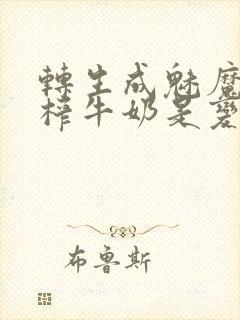 轉生成魅魔
榨牛奶是變
布魯斯